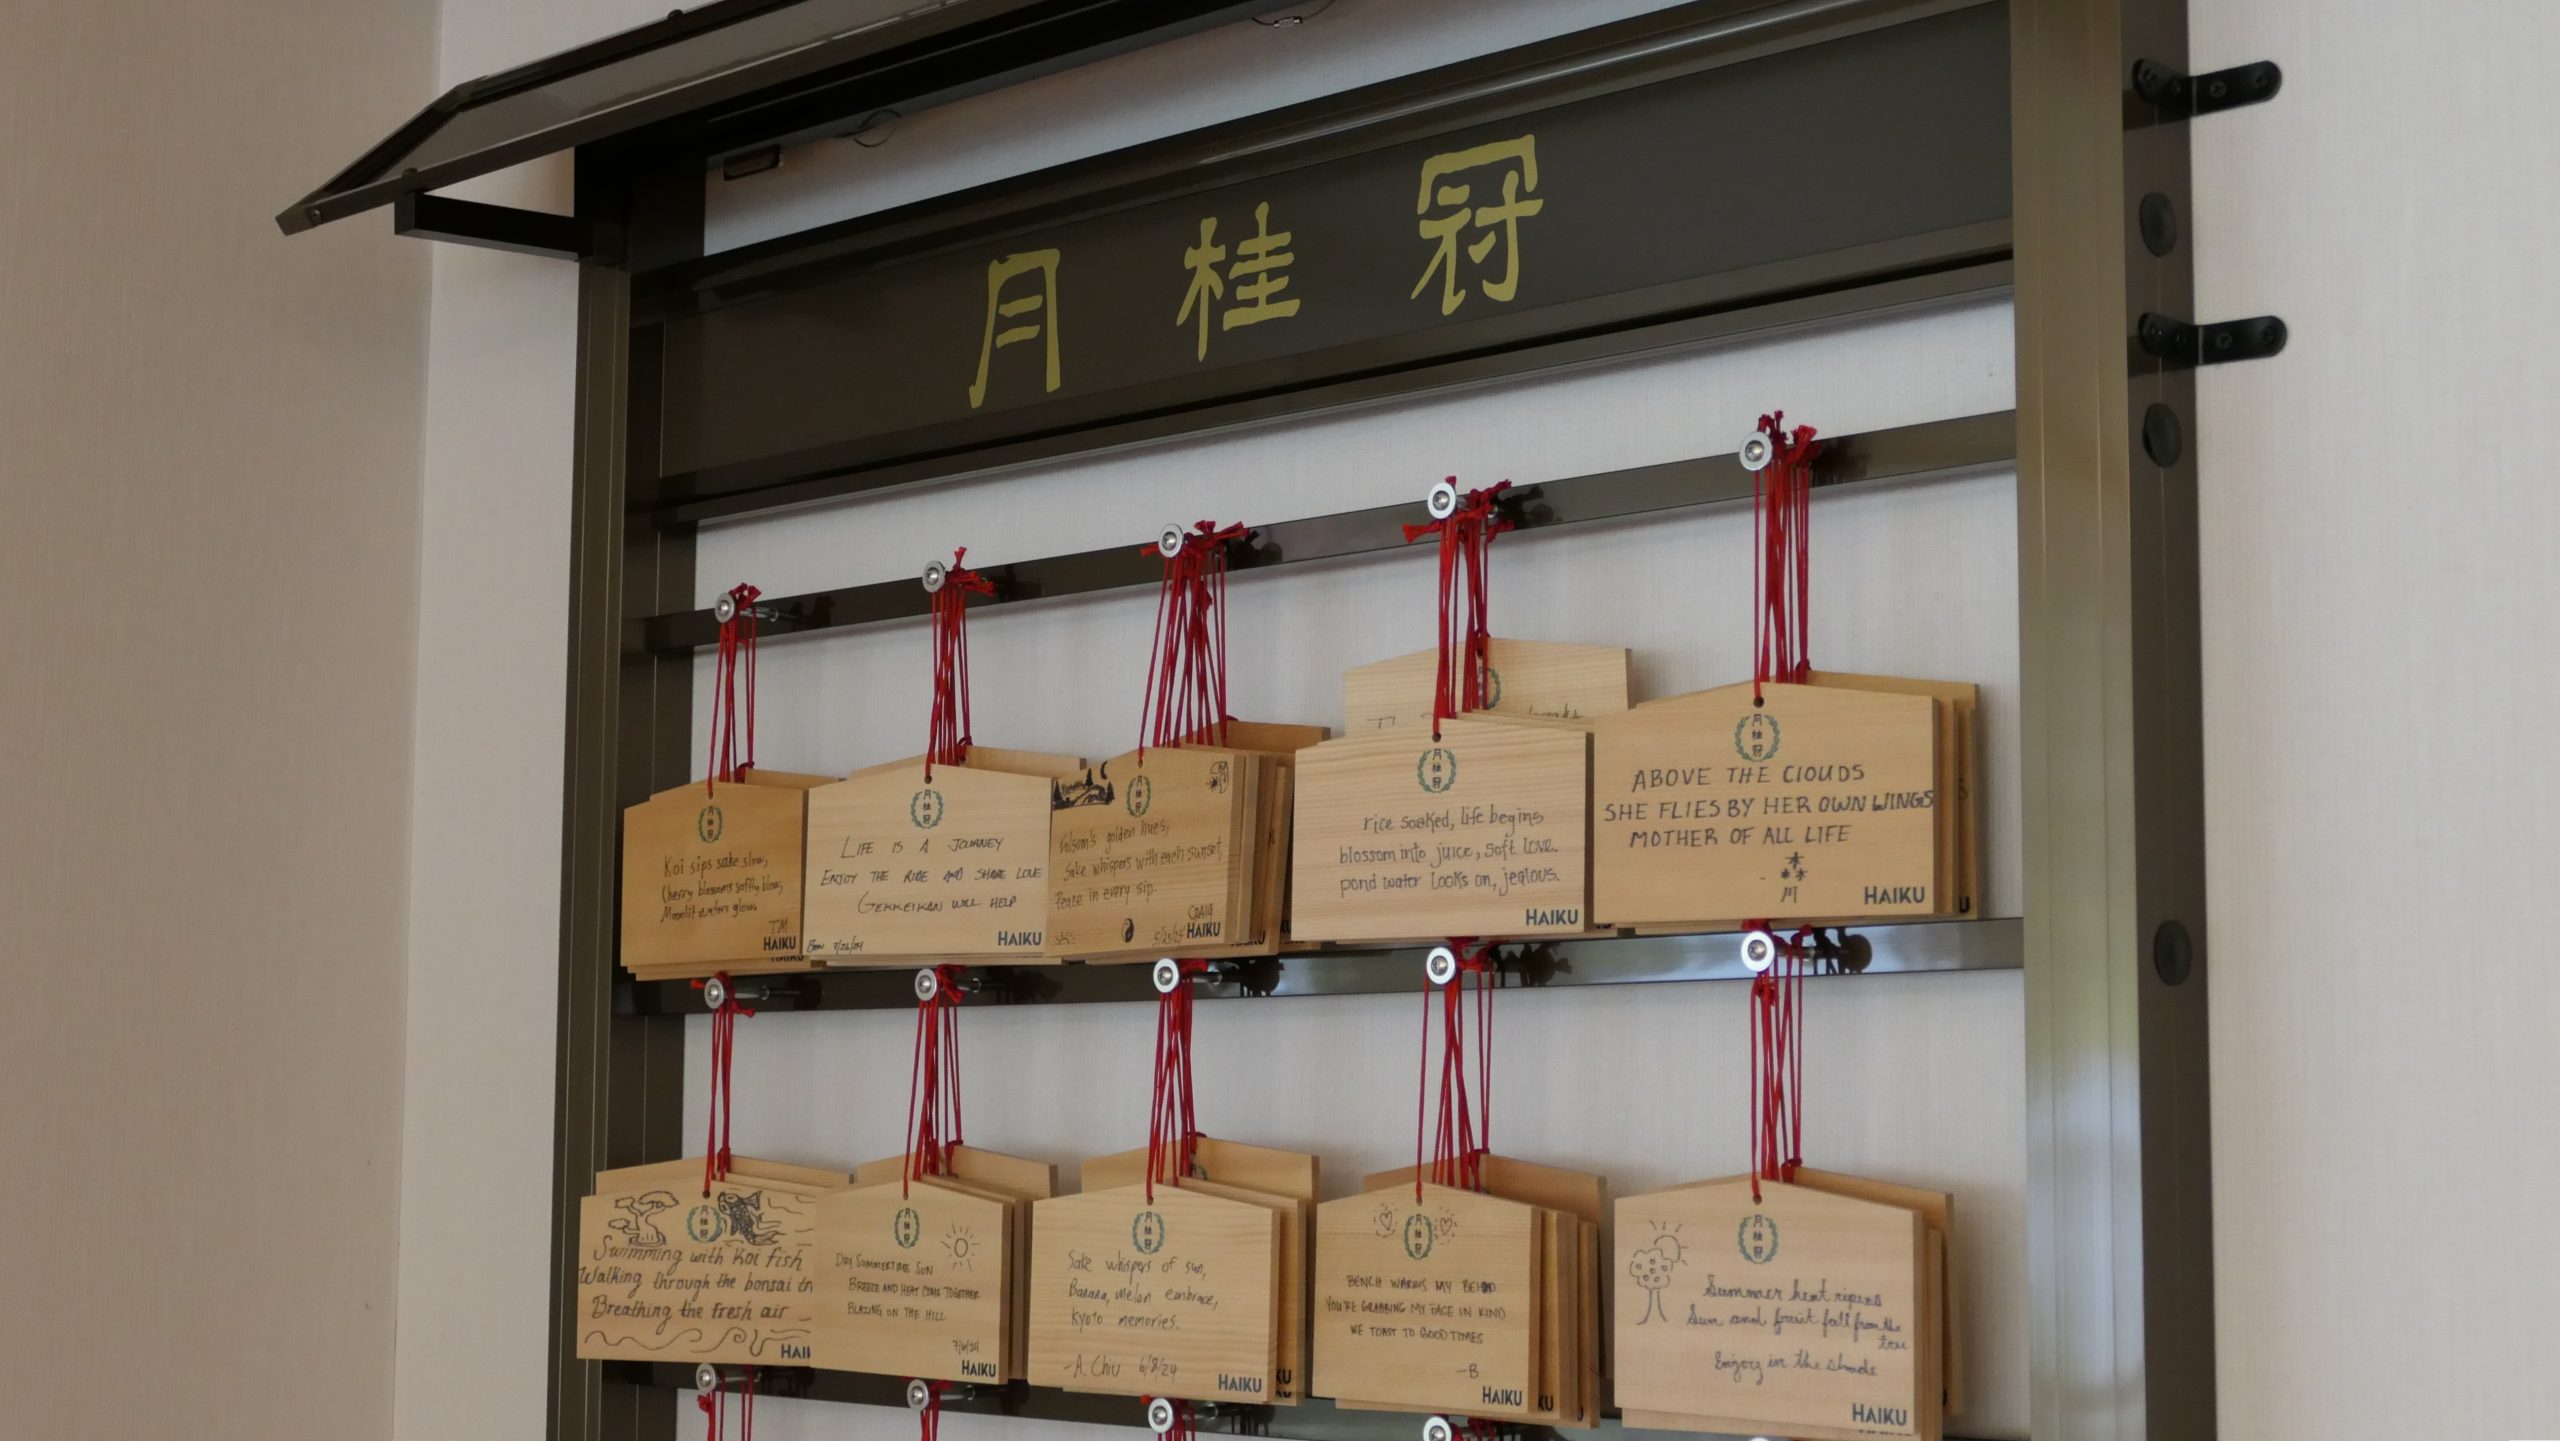 月桂冠
月桂冠
Koi sips sake slow,
Cherry blossoms softly blow,
Moonlit waters glow.
TM
HAIKU
HAIKU
月桂冠
LIFE IS A JOURNEY
ENJOY THE RIDE AND SHARE LOVE
GEKKEIKAN WILL HELP
7/26/24
HAIKU
月桂冠
Folsom's golden hues,
Sake whispers with each sunset,
Peace in every sip.
CRAIG
HAIKU
月桂冠
rice soaked, life begins
blossom into juice, soft love.
pond water looks on, jealous.
HAIKU
月桂冠
ABOVE THE CLOUDS
SHE FLIES BY HER OWN WINGS
MOTHER OF ALL LIFE
HAIKU
月桂冠
Swimming with Koi fish
Walking through the bonsai
Breathing the fresh air
HAI
月桂冠
DRY SUMMERTIME SUN
BREEZE AND HEAT COME TOGETHER
BLAZING ON THE HILL
7/6/24
HAIKU
月桂冠
Sake whispers of sun,
Banana, melon embrace,
Kyoto memories.
-A. Chiu 6/8/24
HAIKU
月桂冠
BENCH WARMS MY BEHIND
YOU'RE GRABBING MY FACE IN KIND
WE TOAST TO GOOD TIMES
-B
HAIKU
月桂冠
Summer heat ripens
Sun and fruit fall from the
tree
Enjoy in the shade
HAIKU